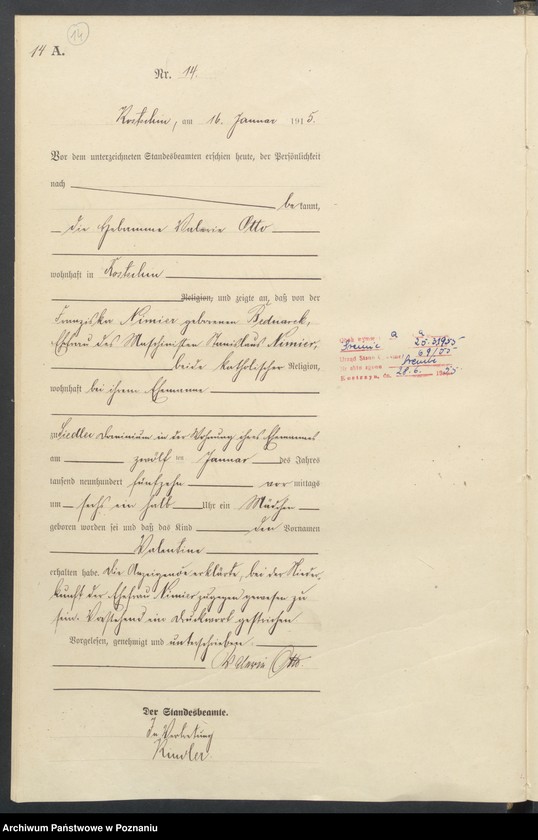 14 A.
14
Nr. 14.
Kostschin, am 16. Januar 1915.
Vor dem unterzeichneten Standesbeamten erschien heute, der Persönlichkeit
nach
bekannt,
die Hebamme Valerie Otto
wohnhaft in Kostschin
Religion, und zeigte an, daß von der
Franziska Nimier geborenen Bednarek,
Ehefrau des Maschinisten Stanislaus Nimier,
beide katholischer Religion,
wohnhaft bei ihrem Ehemanne
zu Siedlec Dominium in der Wohnung ihres Ehemannes
am zwölf ten Januar des Jahres
tausend neunhundert fünfzehn vor mittags
um sechs ein halb Uhr ein Mädchen
geboren worden sei und daß das Kind den Vornamen
Valentine
erhalten habe. Die Anzeigende erklärte, bei der Nieder-
kunft der Ehefrau Nimier zugegen gewesen zu
sein. Vorstehend ein Druckwort gestrichen
Vorgelesen, genehmigt und unterschrieben.
Valerie Otto
Der Standesbeamte.
In Vertretung
a
25.3.1955
69/55
28.6. 1955
Archiwum Państwowe w Poznaniu